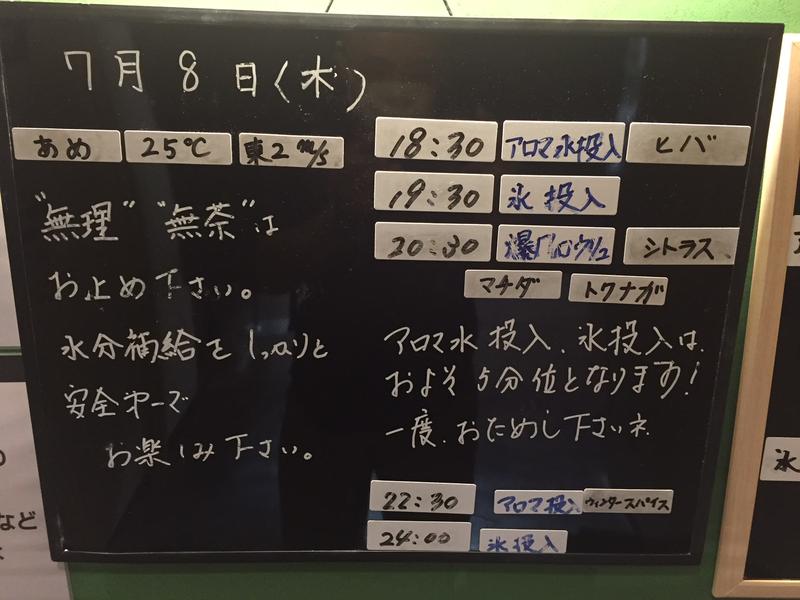 7月8日(木)
あめ 25℃ 東2m/s
"無理" "無茶"は
お止め下さい。
水分補給をしっかりと
安全第一で
お楽しみ下さい。
18:30 アロマ水投入 ヒバ
19:30 氷投入
20:30 爆アロウリュ シトラス
マチダ トクナガ
アロマ水投入、氷投入は、
およそ5分位となります!
一度、おためし下さいネ
22:30 アロマ投入 ウィンタースパイス
24:00 氷投入
など
氷